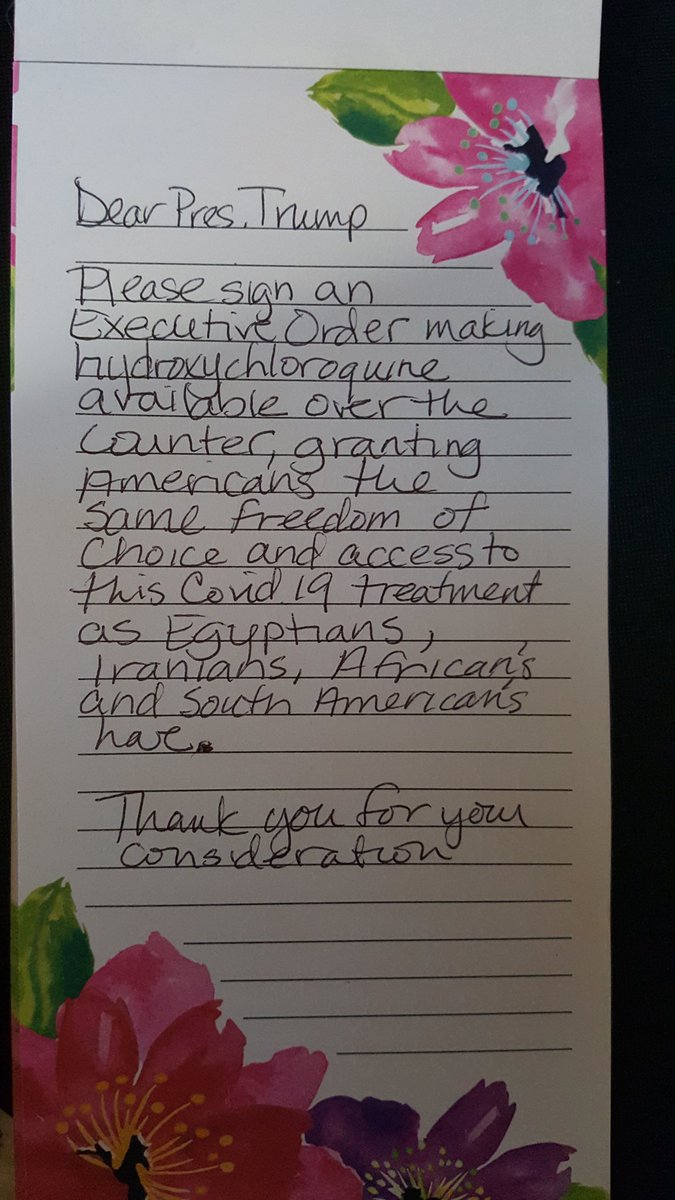 Dear Pres. Trump
Please sign an
Executive Order making
hydroxychloroquine
available over the
counter, granting
Americans the
same freedom of
choice and access to
this Covid 19 treatment
as Egyptians,
Iranians, African's
and South American's
have.
Thank you for your
consideration